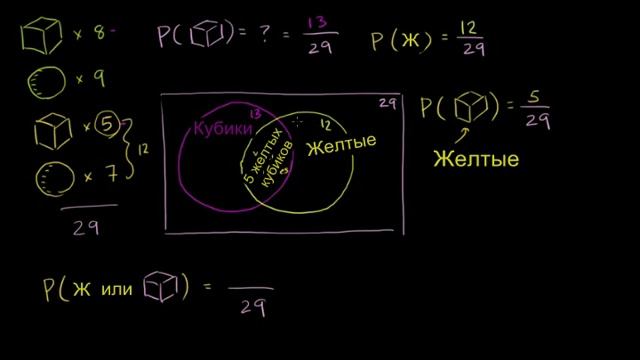 × 8
× 9
× 5
× 7
12
29
P( ) = ? = 13/29
P(Ж) = 12/29
29
13
Кубики
12
Желтые
5 желтых
кубиков
P( ) = 5/29
Желтые
P( Ж или ) = /29